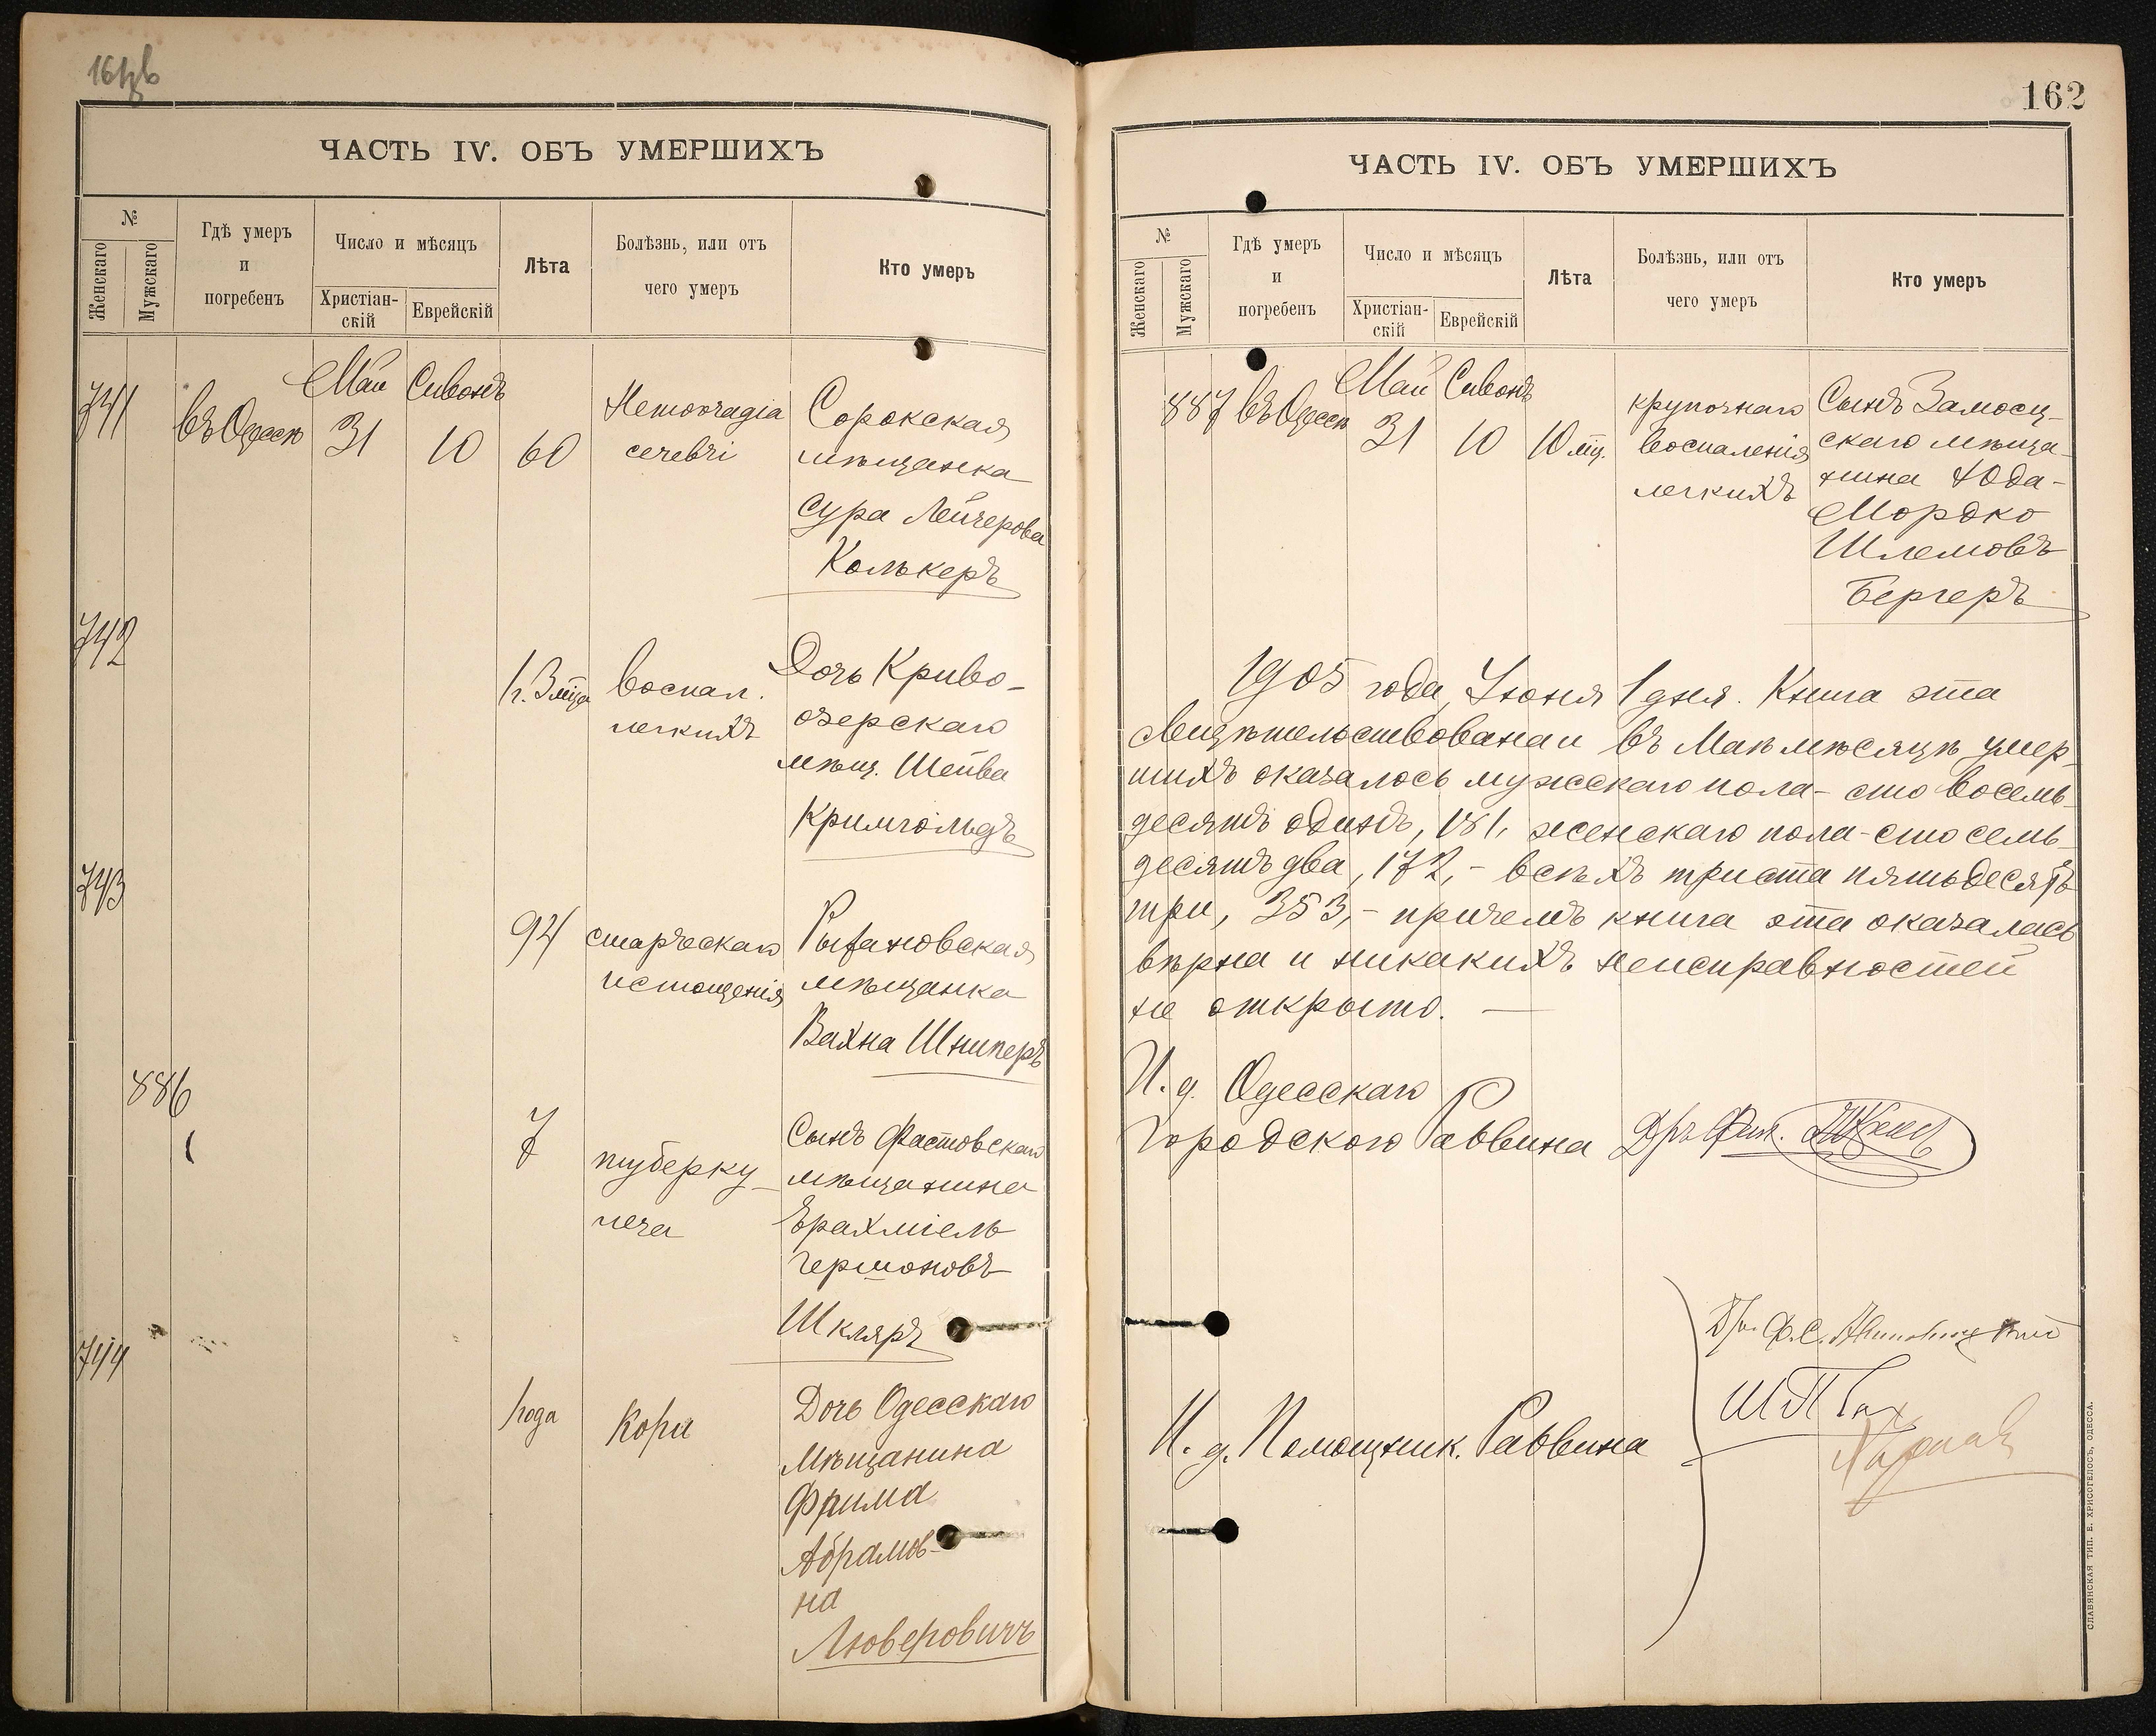 ЧАСТЬ IV. ОБЪ УМЕРШИХЪ
№
Женскаго
Мужскаго
Гдѣ умеръ
и
погребенъ
Число и мѣсяцъ
Христіан-
скій
Еврейскій
Лѣта
Болѣзнь, или отъ
чего умеръ
Кто умеръ
741
въ Одессѣ
Май
31
Сивонъ
10
60
Hemorragia
cerebri
Сорокская
мѣщанка
Сура Лейзерова
Колькеръ
742
1 г. 3 мѣс
воспал.
легкихъ
Дочь Криво-
озерскаго
мѣщ. Шейва
Кримгольдъ
743
94
старческаго
истощенія
мѣщанка
Вахна Шниперъ
886
7
туберку-
леза
Сынъ Фастовскаго
мѣщанина
Ерахміель
Гершоновъ
Шкляръ
744
1 года
Кори
Дочь Одесскаго
Мѣщанина
Фрима
Абрамов-
на
Люберовичъ
162
ЧАСТЬ IV. ОБЪ УМЕРШИХЪ
№
Женскаго
Мужскаго
Гдѣ умеръ
и
погребенъ
Число и мѣсяцъ
Христіан-
скій
Еврейскій
Лѣта
Болѣзнь, или отъ
чего умеръ
Кто умеръ
887
въ Одессѣ
Май
31
Сивонъ
10
10 мц.
крупознаго
воспаленія
легкихъ
Сынъ Замосц-
скаго мѣща-
нина Юда-
Мордко
Шлемовъ
Бергеръ
1905 года, Іюня 1 дня. Книга эта
свидѣтельствована и въ Маѣ мѣсяцѣ умер-
шихъ оказалось мужескаго пола - сто восемь-
десятъ одинъ, 181, женскаго пола - сто семь-
десятъ два, 172, - всѣхъ триста пятьдесятъ
три, 353, - причемъ книга эта оказалась
вѣрна и никакихъ неисправностей
не открыто. —
И. д. Одесскаго
Городского Раввина Д-ръ Фил.
И. д. Помощник. Раввина
СЛАВЯНСКАЯ ТИП. Е. ХРИСОГЕЛОСЪ, ОДЕССА.